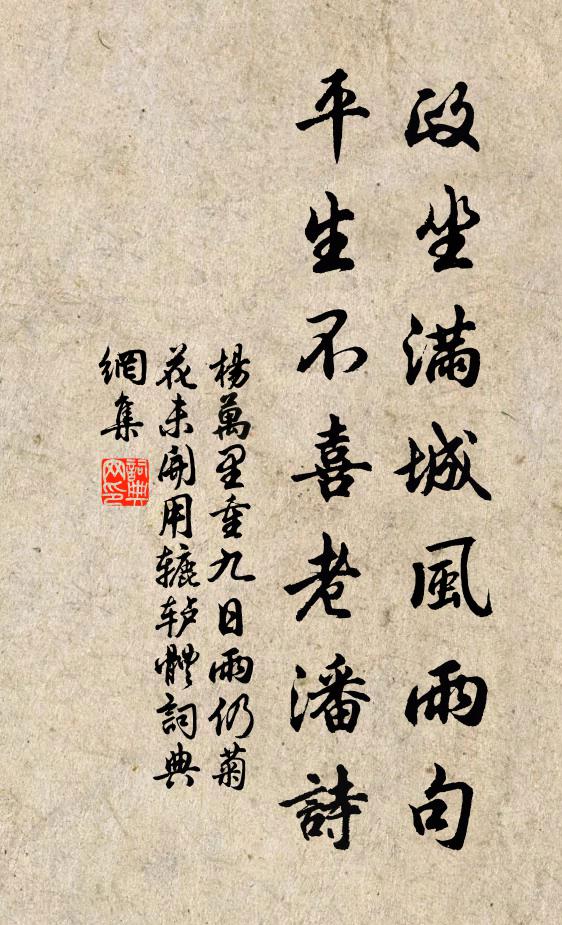 政坐滿城風雨句
平生不喜老潘詩
楊萬里重九日雨仍菊
花未開用辘轳體詞典
網集
詞典
网印